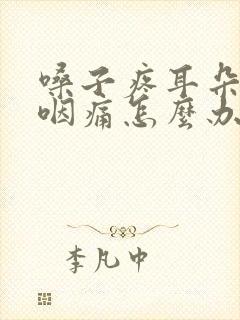 嗓子疼耳朵
咽痛怎麼办
李凡中